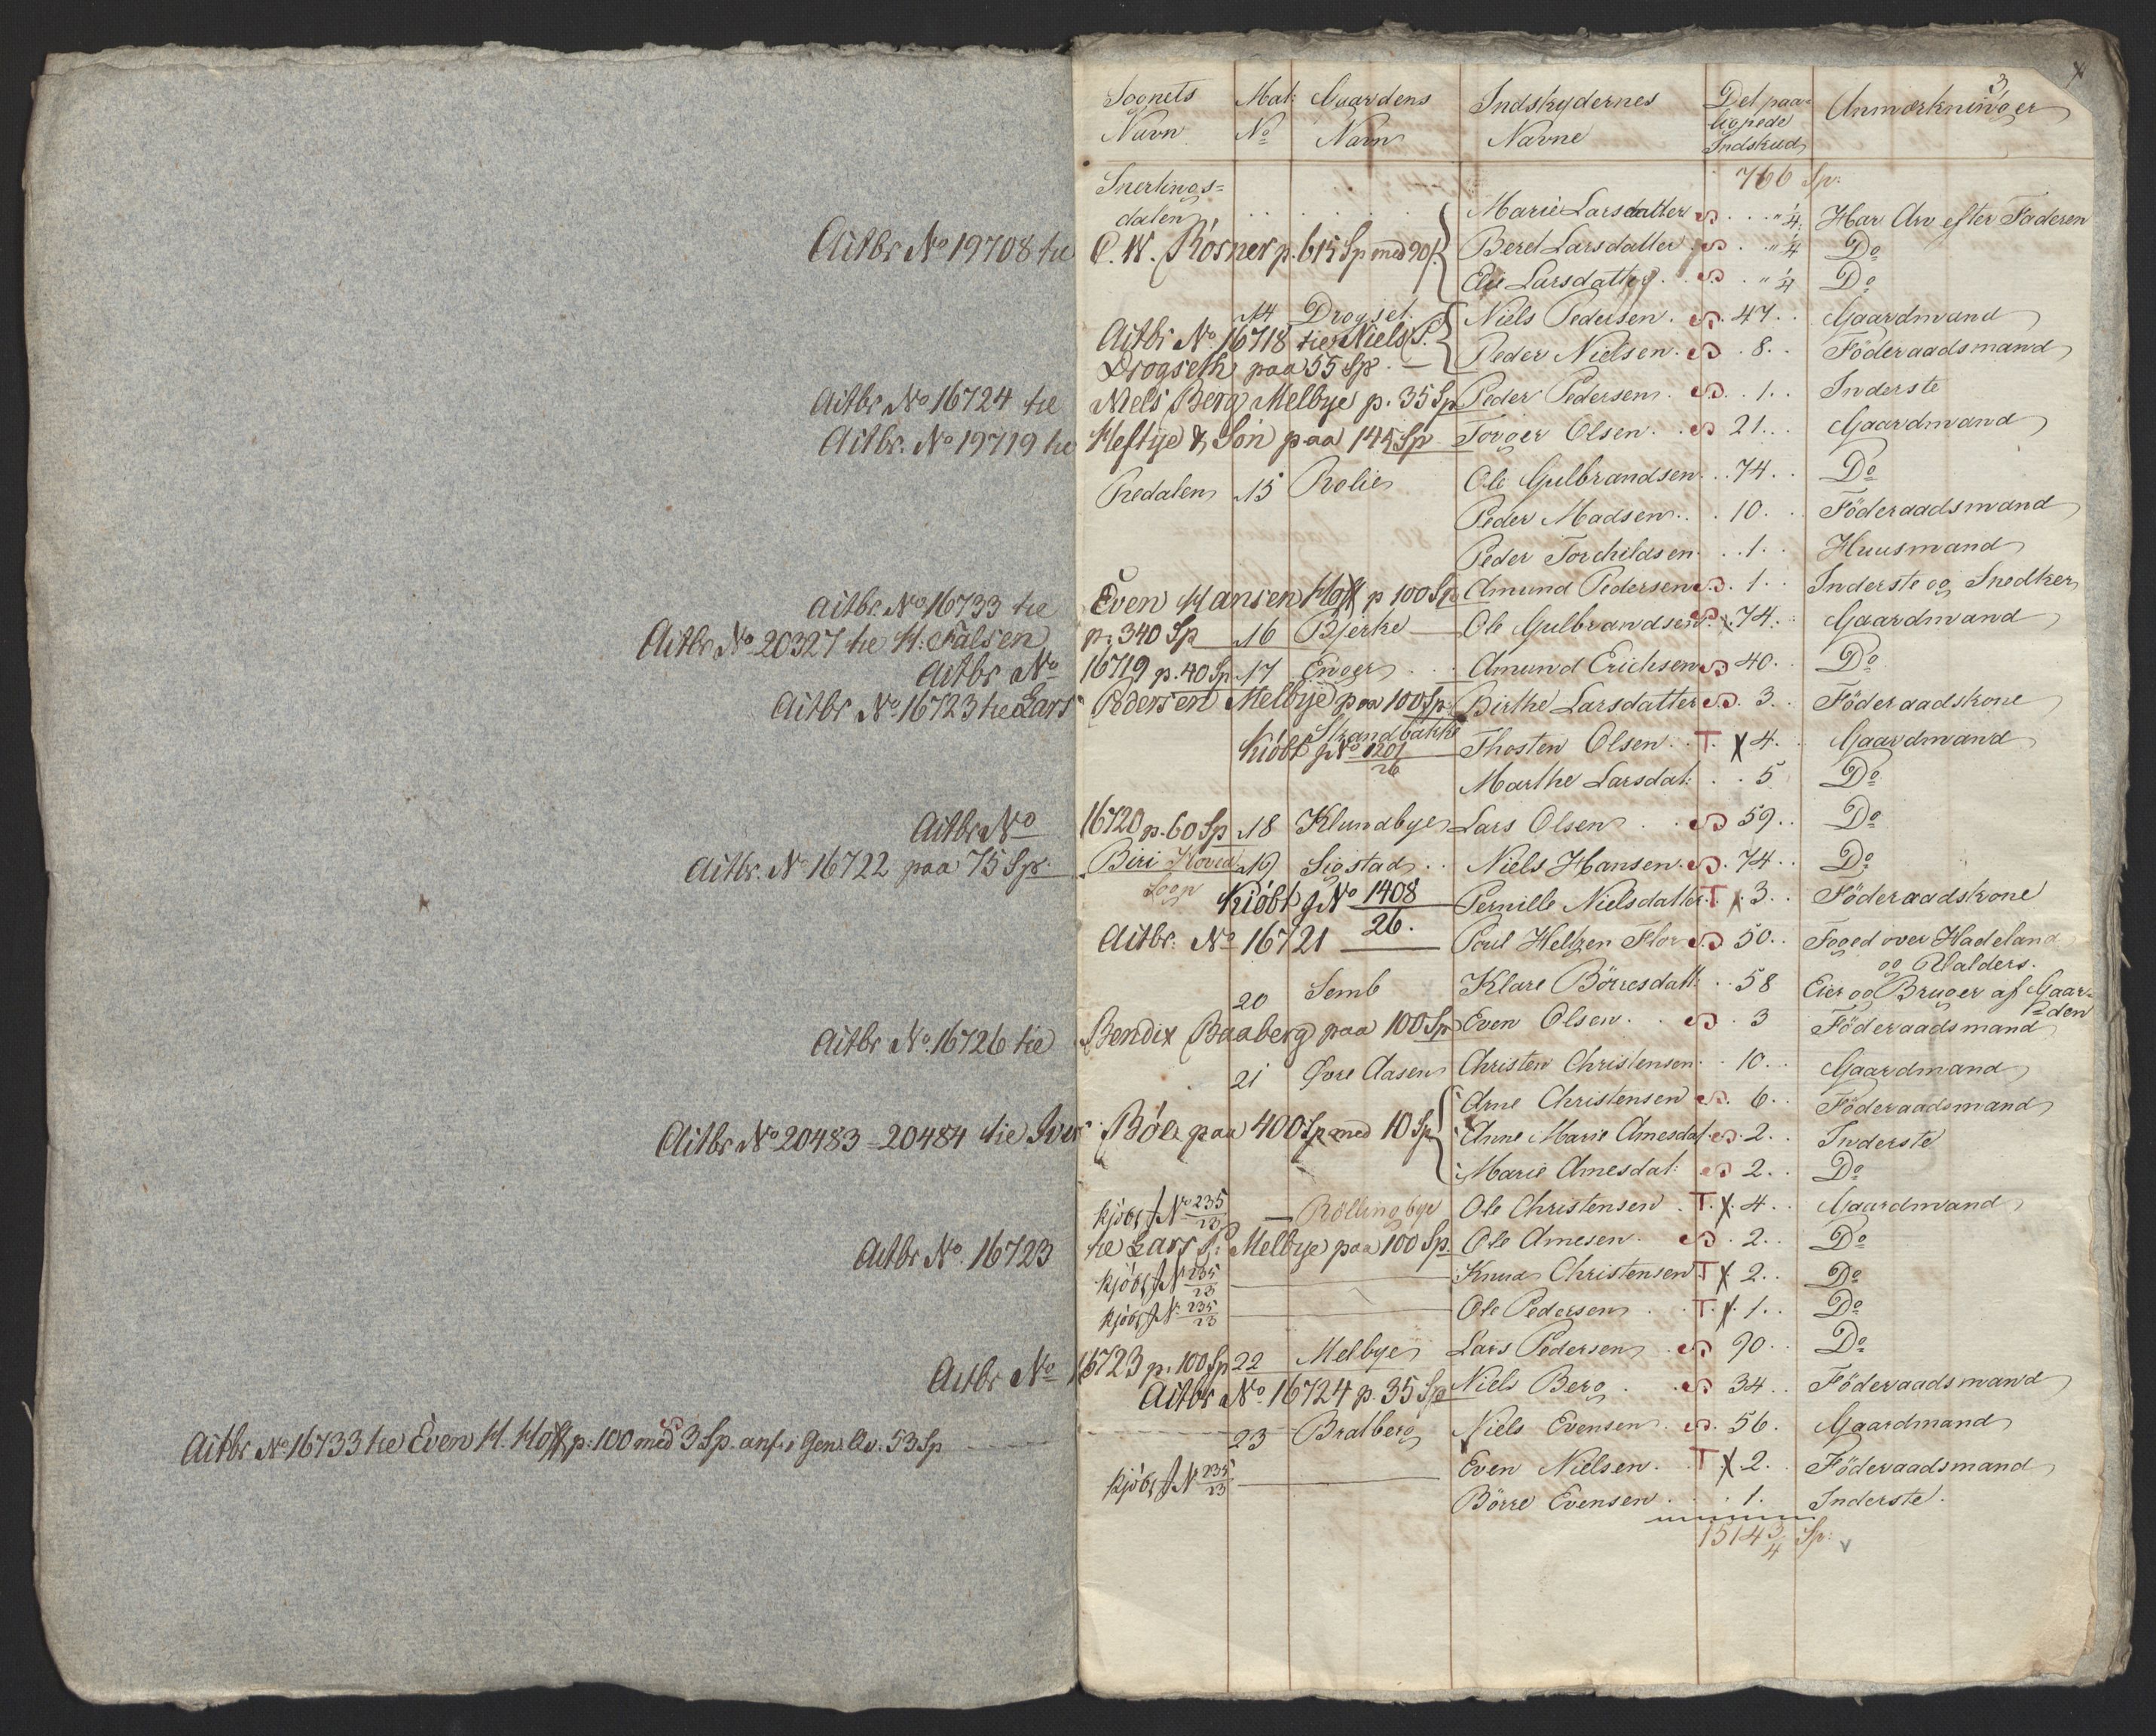 3
Sognets Navn | Mat: No | Gaardens Navn | Indskydernes Navne | Det paalignede Indskud | Anmærkninger
766 Sp:
Snertings=
dalen . . . . . Marie Larsdatter . . " 1/4 Har Arv efter Faderen
Aitbr No 19708 tie C. W. Rosner p. 615 Sp med 90/. Beret Larsdatter . . " 1/4 Do
Else Larsdatter . . " 1/4 Do
14 Drogset. Niels Pedersen . 47 . . Gaardmand
Aitbr No 16718 tie Niels P.
Drogseth paa 55 Sp. Peder Nielsen . 8 . . Föderaadsmand
Aitbr No 16724 tie Niels Berg Melbye p. 35 Sp Peder Pedersen . 1 . . Inderste
Aitbr. No 19719 tie Heftye & Søn paa 145 Sp Torger Olsen . 21 . . Gaardmand
Redalen 15 Rolie Ole Gulbrandsen . . 74 . . Do
Peder Madsen . . 10 . . Föderaadsmand
Peder Torchildsen . . 1 . . Huusmand
Aitbr No 16733 tie Even Hansen Hoff p 100 Sp Amund Pedersen . 1 . . Inderste og Snedker
Aitbr No 20327 tie H. Falsen p. 340 Sp 16 Bjerke Ole Gulbrandsen . 74 . . Gaardmand
Aitbr No 16719 p. 40 Sp. 17 Enger . . Amund Erichsen 40 . . Do
Aitbr No 16723 tie Lars Pedersen Melbye paa 100 Sp. Birthe Larsdatter . 3 . . Föderaadskone
Strandbakke
Kiöbt f No 1201/26 Thosten Olsen . T. X 4 . . Gaardmand
Marthe Larsdat: . . 5 Do
Aitbr No 16720 p. 60 Sp 18 Klundbye Lars Olsen . . 59 . . Do
Aitbr. No 16722 paa 75 Sp. Biri Hoved 19 Sigstad . . Niels Hansen . 74 . . Do
Sogn Kiöbt f No 1408/26. Pernille Nielsdatter T. X 3 . . Föderaadskone
Aitbr. No 16721 Poul Heltzen Flor 50 . . Foged over Hadeland
og Valders.
20 Semb Klare Börresdatt: . . 58 Eier og Bruger af Gaar=
den
Aitbr No. 16726 tie Bendix Baaberg paa 100 Sp Even Olsen . . 3 Föderaadsmand
21 Øvre Aasen Christen Christensen . . 10 . . Gaardmand
Arne Christensen . 6 . . Föderaadsmand
Aitbr No 20483 - 20484 tie Iver Böe paa 400 Sp med 10 Sp Anne Marie Arnesdat . 2 . . Inderste
Marie Arnesdat: 2 . . Do
kjöbt f No 235/23 — Röllingbye Ole Christensen . T. X. 4 . . Gaardmand
Aitbr No. 16723 tie Lars P: Melbye paa 100 Sp. Ole Arnesen . . 2 . . Do
kjöbt f No 235/23 Knud Christensen T. X 2 . . Do
kjöbt f No 235/23 Ole Pedersen . . T. X. 1 . . Do
Aitbr No 16723 p. 100 Sp 22 Melbye Lars Pedersen . 90 . . Do
Aitbr No. 16724 p. 35 Sp Niels Berg . . 34 . . Föderaadsmand
Aitbr No 16733 tie Even H. Hoff p. 100 med 3 Sp. anf. i Gen. Qv. 53 Sp 23 Bratberg Niels Evensen . 56 . Gaardmand
kjöbt f No 235/23 Even Nielsen . T. X 2 . . Föderaadsmand
Börre Evensen . . . 1 . Inderste.
1514 3/4 Sp: